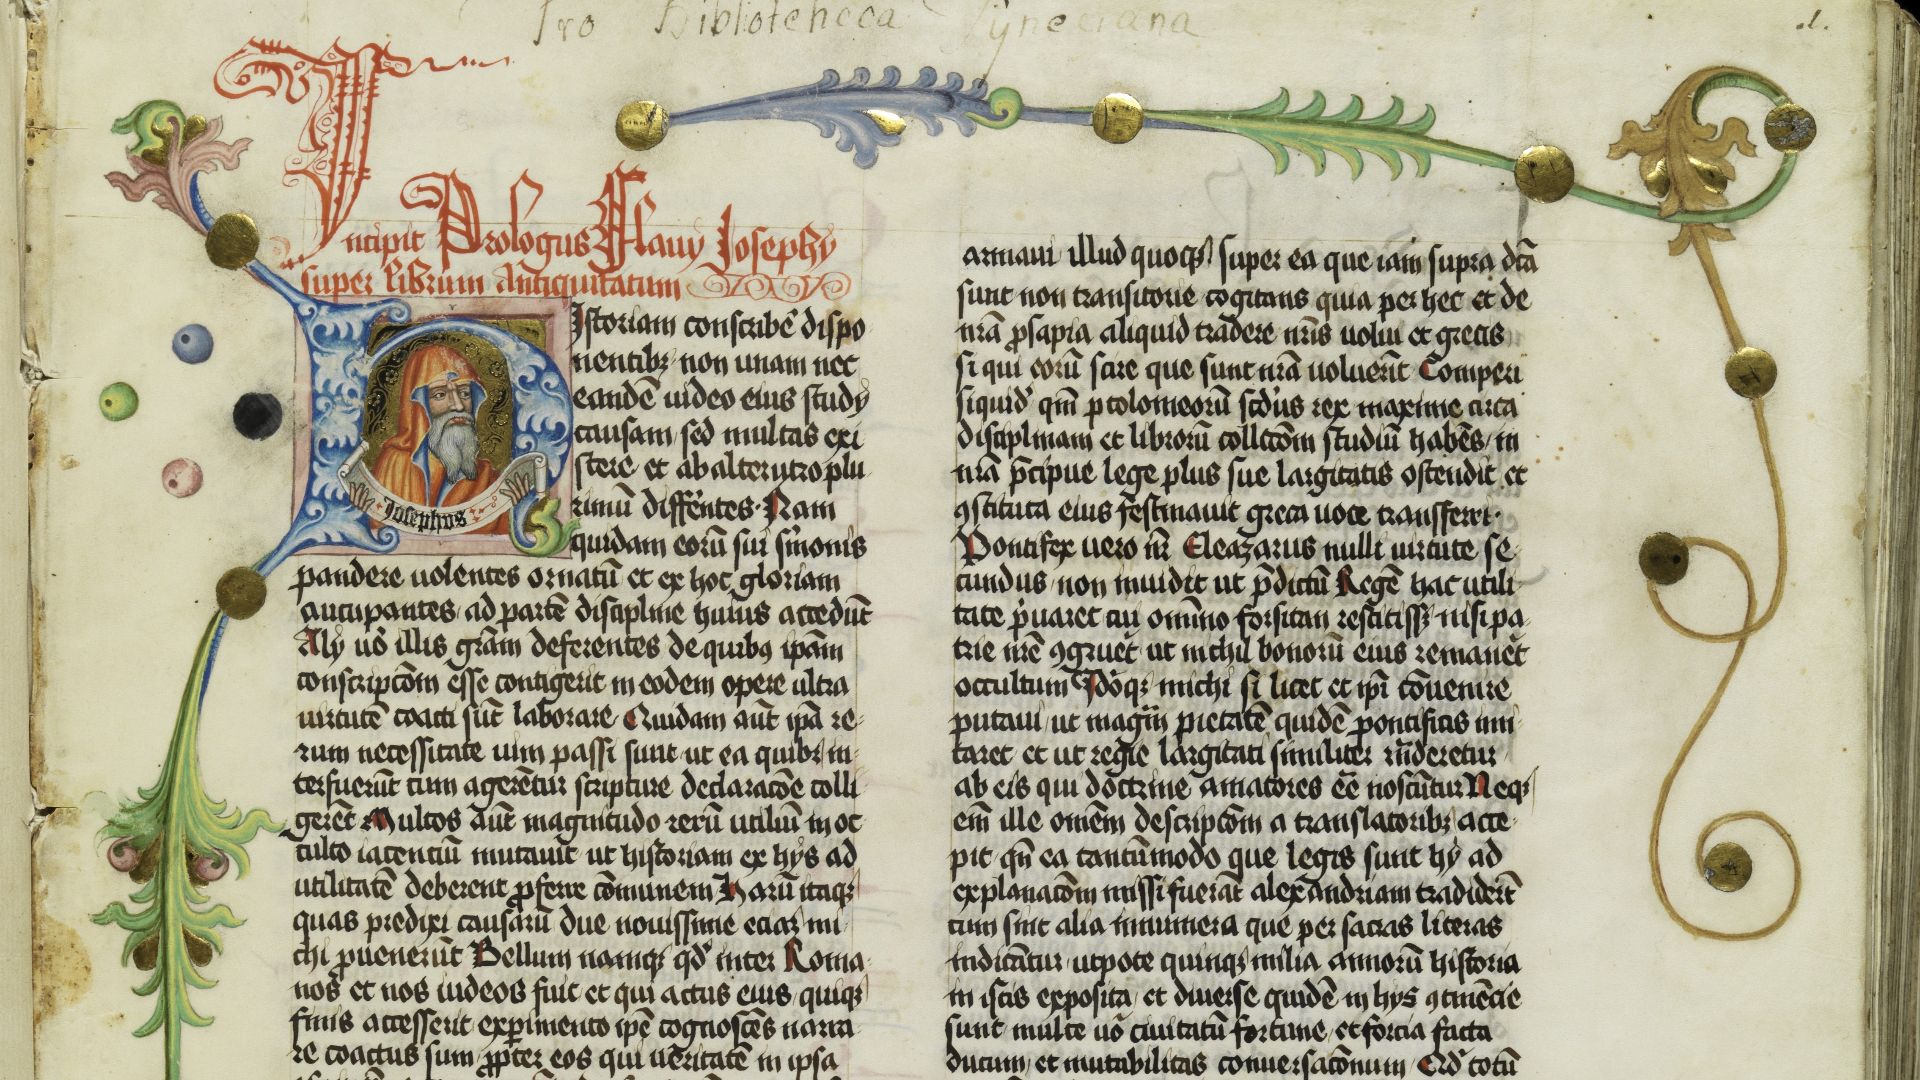 Pro Bibliotheca Tynecziana
d.
Incipit Prologus Flauy Josephy
super librum Antiquitatum
Istoriam conscribē dispo-
nentibꝫ non unam nec
eandē uideo eius study
causam / sed multas exi-
stere et ab alterutro plu-
rimū differ̄tes. Nam
quidam eorū sui s̄monis
Josephus
pandere uolentes ornatū et ex hoc gloriam
aucupantes / ad partē discipline huius accedūt
Aly uō illis gr̄am deferentes de quibꝯ ip̄am
conscripcōm eſſe contigerit in eodem opere ultra
uirtutē coacti sūt laborare Quidam aūt ip̄a re-
rum necessitate uim passi sunt ut ea quibꝫ in-
terfuerūt cum agerētur scripture declaracōe colli-
gerēt Multos aūt magnitudo rerū utiliū in oc-
culto iacentiū mutauit ut historiam ex hys ad
utilitatē deberent ꝓferre cōmunem Harū itaqꝫ
quas predixi causarū due nouissime eciaꝫ mi-
chi ꝓuenerūt Bellum namqꝫ qd̓ inter Roma-
nos et nos iudeos fuit et qui actus eius / quiqꝫ
finis accesserit experimento ip̄e cognoscēs narra-
re coactus sum / ꝓpter eos qui ueritatē in ipsa
armaui illud quoqꝫ super ea que iam supra dc̄a
sunt non transitorie cogitans quia per hec et de
nr̄a ꝓsapia aliquid tradere nr̄is uolui et grecis
si qui eorū scire que sunt nr̄a uoluerīt Comperi
siquid̓ qm̄ ptolomeorū scd̓us rex maxime circa
disciplinam et librorū collccōm studiū habēs / in
nr̄a p̄cipue lege plus sue largitatis ostendit et
ꝯstituta eius festinauit greca uoce transferri.
Pontifex uero nr̄ Eleazarus nulli uirtute se-
cundus / non inuidit ut p̄dictū Regē hac utili-
tate p̓uaret cui omīno forsitan restitissꝫ nisi pa-
trie nr̄e ꝯgruēt ut nichil bonorū eius remanēt
occultum Idōqꝫ michi si licet et ip̄i cōuenire
putaui / ut magīi pietatē quidē pontificis imi-
tarer et ut regie largitati similiter rn̄deretur
ab eis qui doctrine amatores eē noscūtur Neqꝫ
em̄ ille omēm descripcōm a translatoribꝫ acce-
pit qn̄ ea tantūmodo que legis sunt hy ad
explanacōm missi fuerāt alexandriam tradiderūt
cum sint alia innumera que per sacras literas
indicātur / utpote quinqꝫ milia annorū historia
in istis exposita / et diuerse quidē in hys ꝯtinēcie
sunt multe uō ciuitatū fortune / et forcia facta
ducum / et mutabilitas conuersacōnum / Qd̓ totū